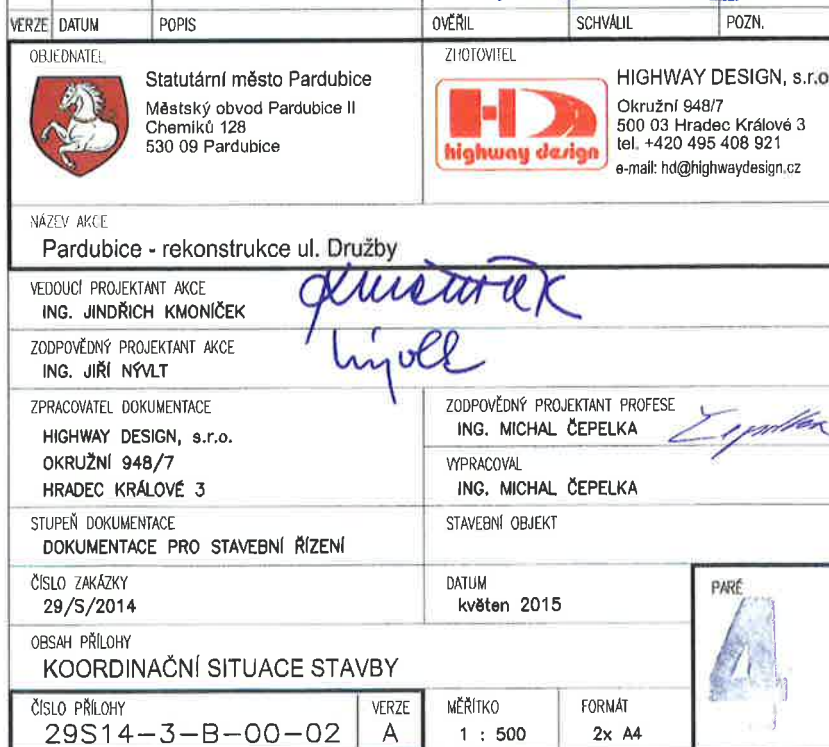 VERZE DATUM POPIS OVĚŘIL SCHVÁLIL POZN.
OBJEDNATEL
Statutární město Pardubice
Městský obvod Pardubice II
Chemiků 128
530 09 Pardubice
ZHOTOVITEL
highway design
HIGHWAY DESIGN, s.r.o
Okružní 948/7
500 03 Hradec Králové 3
tel. +420 495 408 921
e-mail: hd@highwaydesign.cz
NÁZEV AKCE
Pardubice - rekonstrukce ul. Družby
VEDOUCÍ PROJEKTANT AKCE
ING. JINDŘICH KMONÍČEK
ZODPOVĚDNÝ PROJEKTANT AKCE
ING. JIŘÍ NÝVLT
ZPRACOVATEL DOKUMENTACE
HIGHWAY DESIGN, s.r.o.
OKRUŽNÍ 948/7
HRADEC KRÁLOVÉ 3
ZODPOVĚDNÝ PROJEKTANT PROFESE
ING. MICHAL ČEPELKA
VYPRACOVAL
ING. MICHAL ČEPELKA
STUPEŇ DOKUMENTACE
DOKUMENTACE PRO STAVEBNÍ ŘÍZENÍ
STAVEBNÍ OBJEKT
ČÍSLO ZAKÁZKY
29/S/2014
DATUM
květen 2015
PARÉ
4
OBSAH PŘÍLOHY
KOORDINAČNÍ SITUACE STAVBY
ČÍSLO PŘÍLOHY
29S14-3-B-00-02
VERZE
A
MĚŘÍTKO
1 : 500
FORMÁT
2x A4